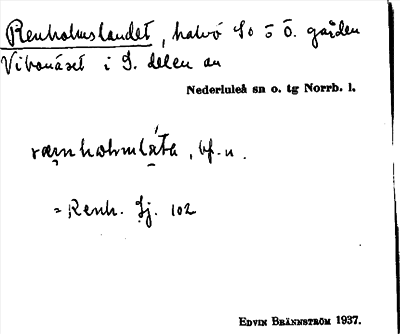 Renholmslandet, halvö SO o Ö. gården
Vibonäset i S. delen av
Nederluleå sn o. tg Norrb. l.
bf. u.
= Renh. Sj. 102
EDVIN BRÄNNSTRÖM 1937.